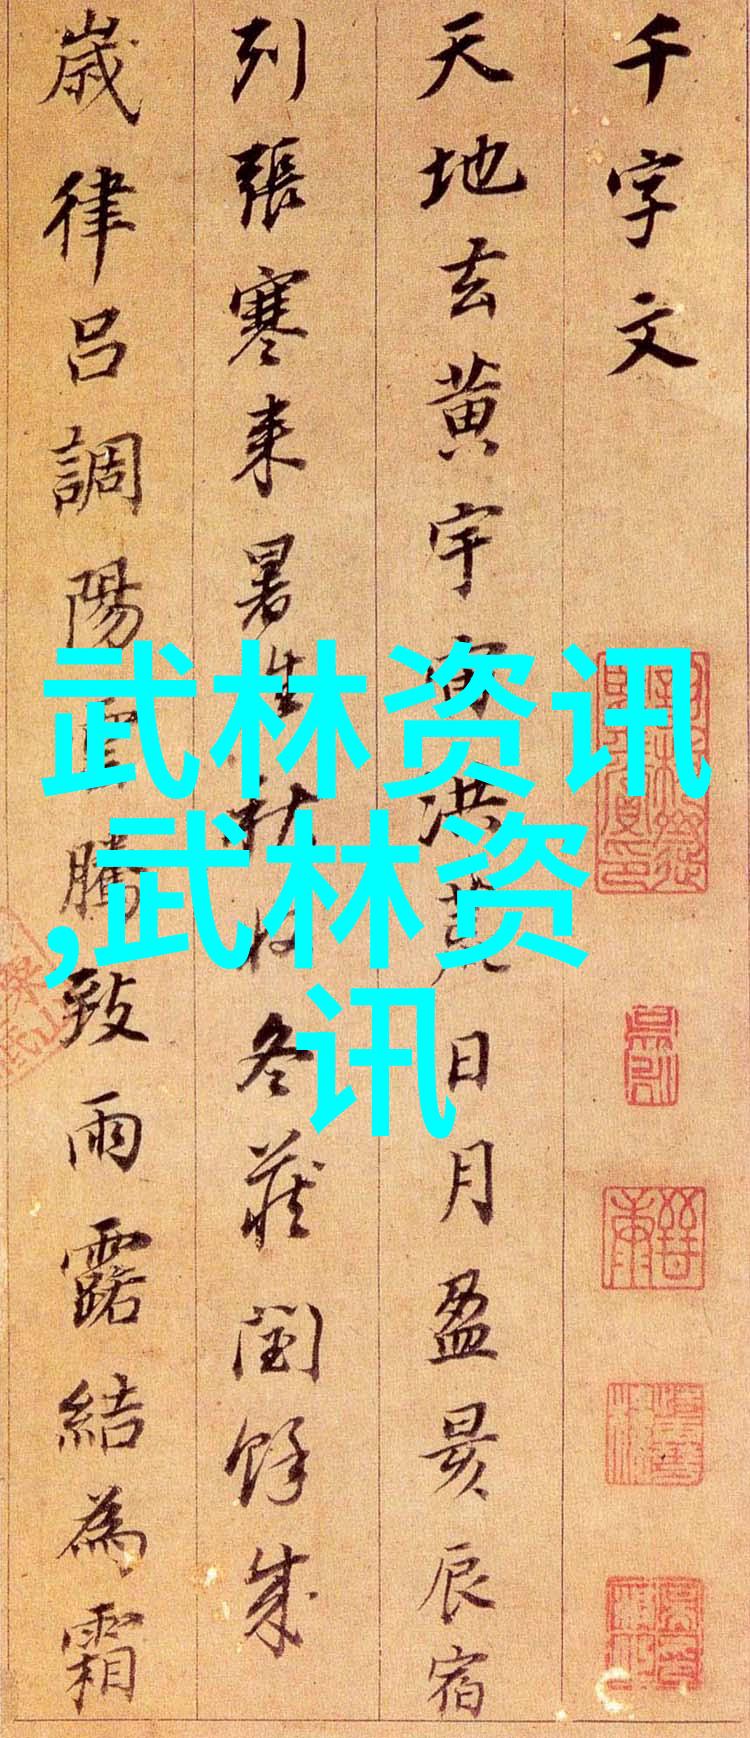 千字文
天地玄黄宇宙洪荒日月盈昃辰宿
列張寒来暑往秋收冬藏閏餘成
歲律吕調陽雲騰致雨露結為霜
武林资讯
,武林资
讯